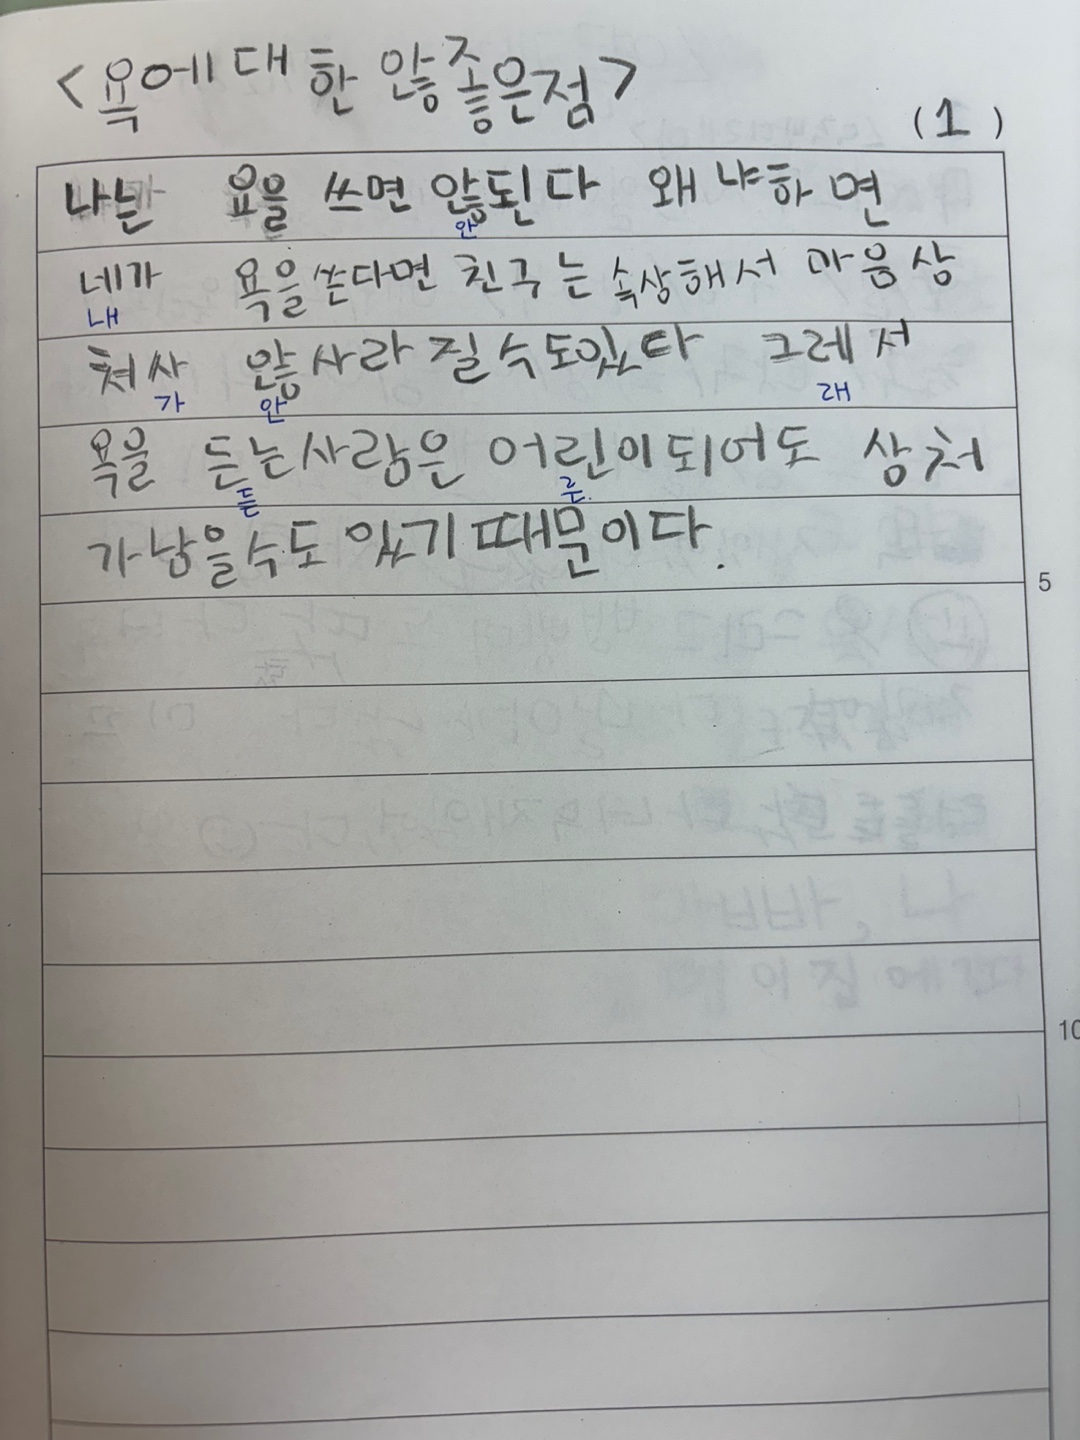 <욕에 대한 않좋은점>
(1)
나는 욕을 쓰면 않된다 왜냐하면
안
네가 욕을쓴다면 친구는 속상해서 마음상
내
처사 않사라질수도있다 그레서
가 안 래
욕을 든는사람은 어린이되어도 상처
듣 른.
가남을수도 있기때문이다.
5
10